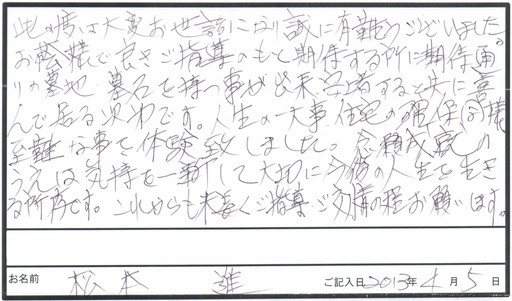 此の度は大変お世話になり誠に有難うございました。
お蔭様で良きご指導のもと期待する所に期待通
りの墓地 墓石を持つ事が出来 者すると共に喜
んで居る次第です。人生の大事 住宅の確保同様
至難な事を体験致しました。念願成就の
うえは気持を一新して大切に今後の人生を生き
る所存です。これからも末長くご指導ご交情の程お願いします。
お名前 松本 進 ご記入日2013年4月5日